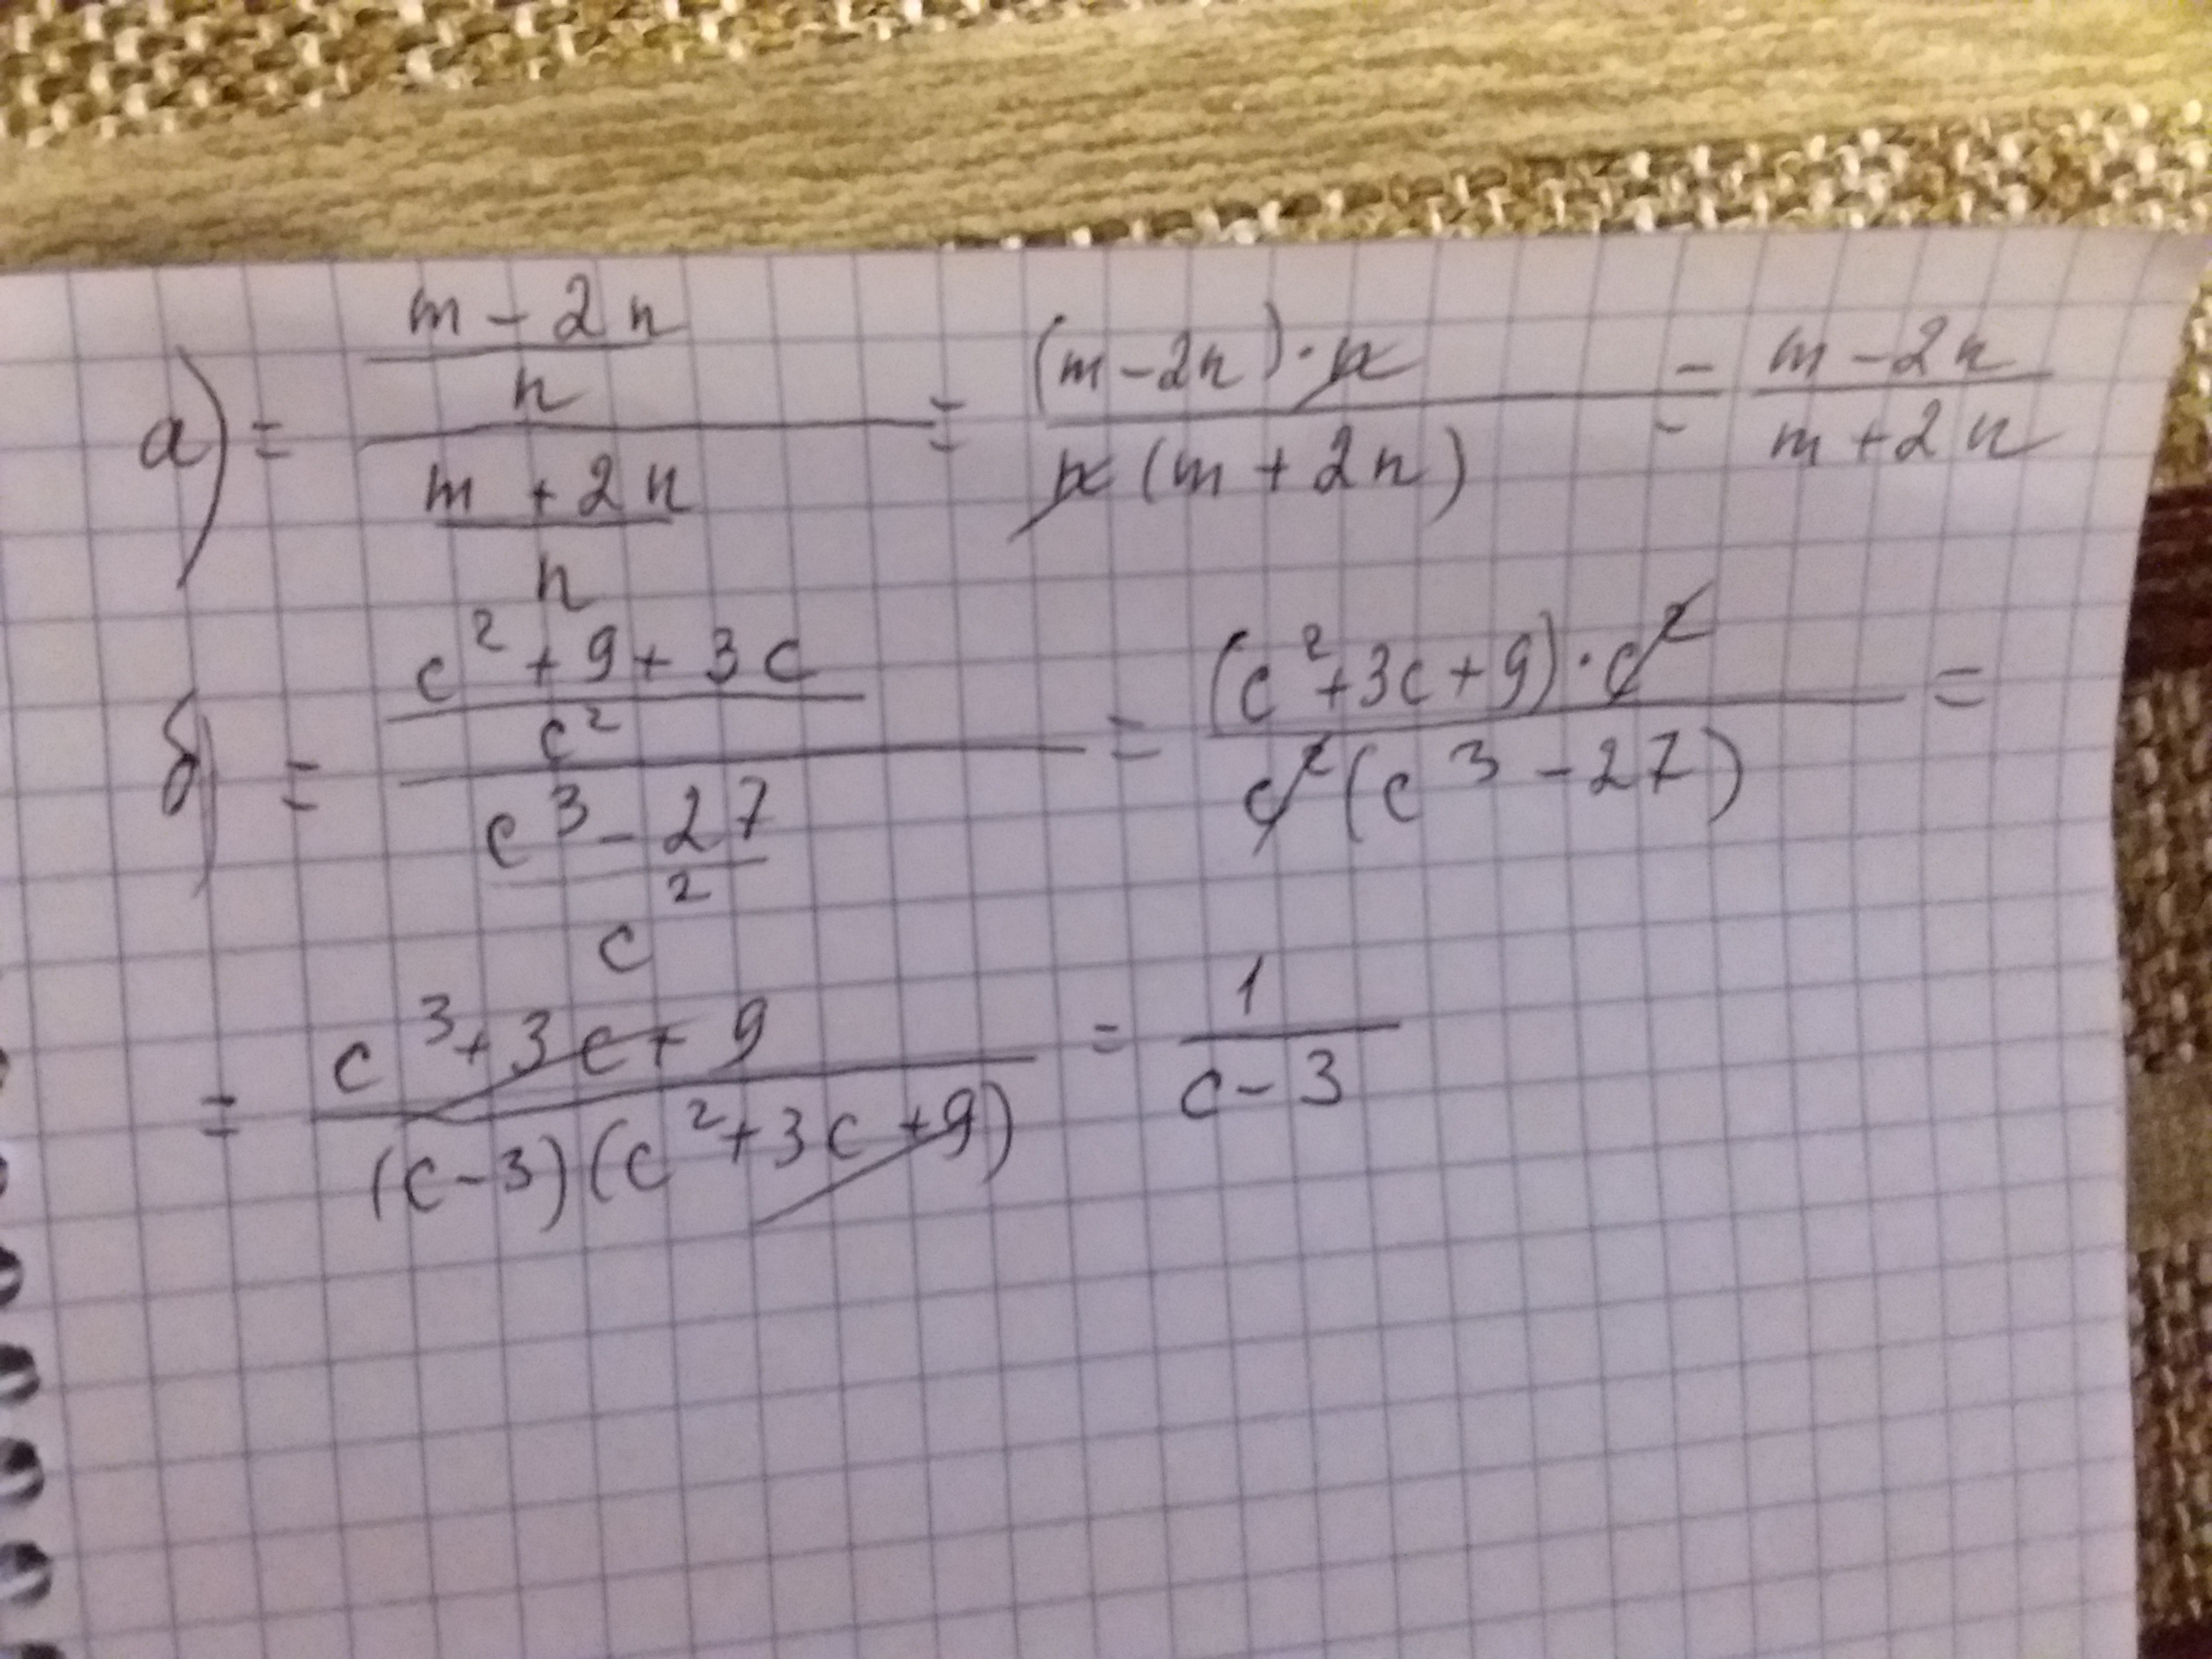 а) = \frac{\frac{m - 2n}{n}}{\frac{m + 2n}{n}} = \frac{(m - 2n) \cdot n}{n (m + 2n)} = \frac{m - 2n}{m + 2n}
б) = \frac{\frac{c^2 + 9 + 3c}{c^2}}{\frac{c^3 - 27}{c^2}} = \frac{(c^2 + 3c + 9) \cdot c^2}{c^2 (c^3 - 27)} =
= \frac{c^3 + 3c + 9}{(c - 3)(c^2 + 3c + 9)} = \frac{1}{c - 3}